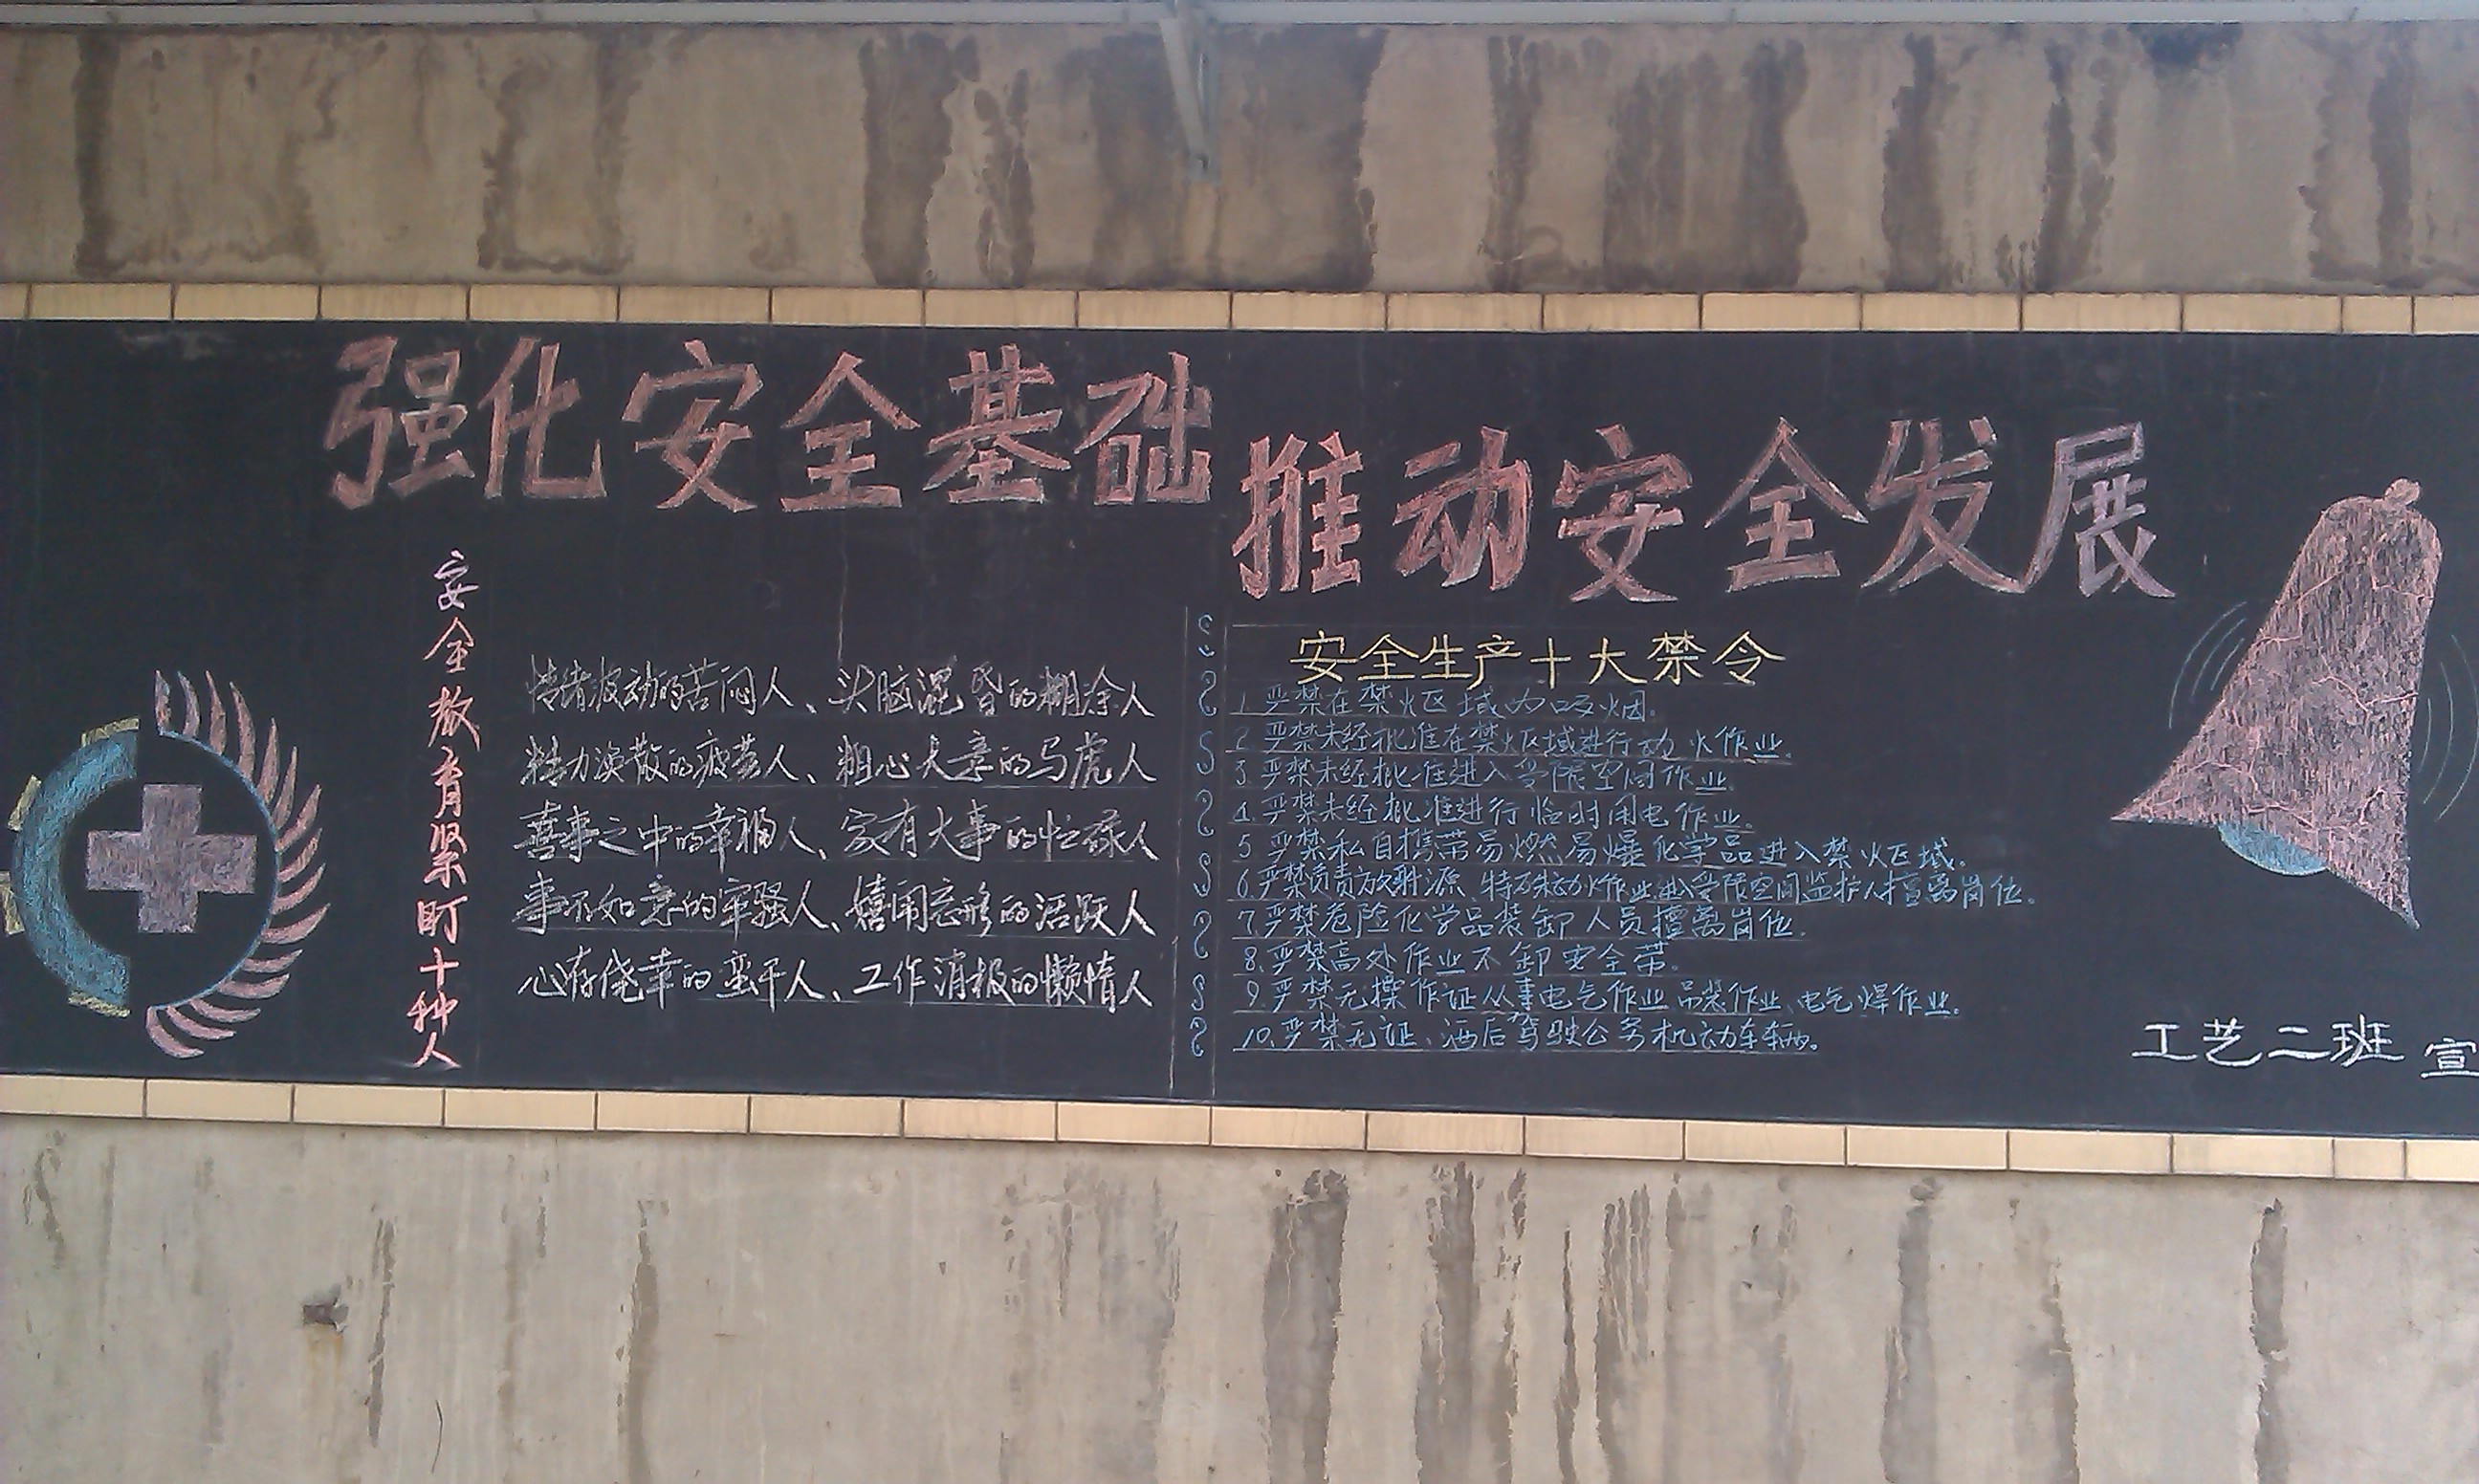 强化安全基础
推动安全发展
安全教育紧盯十种人
情绪波动的苦闷人、头脑混昏的糊涂人
精力涣散的疲劳人、粗心大意的马虎人
喜事之中的幸福人、家有大事的忙碌人
事不如意的牢骚人、嬉闹忘形的活跃人
心存侥幸的蛮干人、工作消极的懒惰人
安全生产十大禁令
1.严禁在禁火区域内吸烟。
2.严禁未经批准在禁火区域进行动火作业。
3.严禁未经批准进入受限空间作业。
4.严禁未经批准进行临时用电作业。
5.严禁私自携带易燃易爆化学品进入禁火区域。
6.严禁负责放射源、特殊动火作业、进入受限空间监护人擅离岗位。
7.严禁危险化学品装卸人员擅离岗位。
8.严禁高处作业不卸安全带。
9.严禁无操作证从事电气作业、吊装作业、电气焊作业。
10.严禁无证、酒后驾驶公务机动车辆。
工艺二班 宣